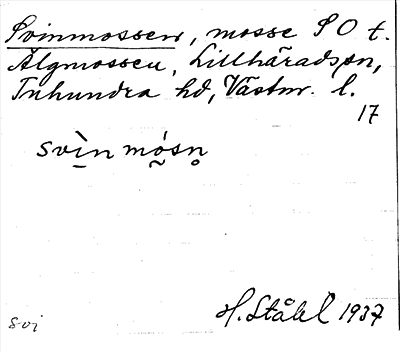 Svinmossen, mosse S O t.
Älgmossen, Lillhäradssn,
Tuhundra hd, Västm. l.
17
svìn mó̰sn̥
H. Ståhl 1937
Svi